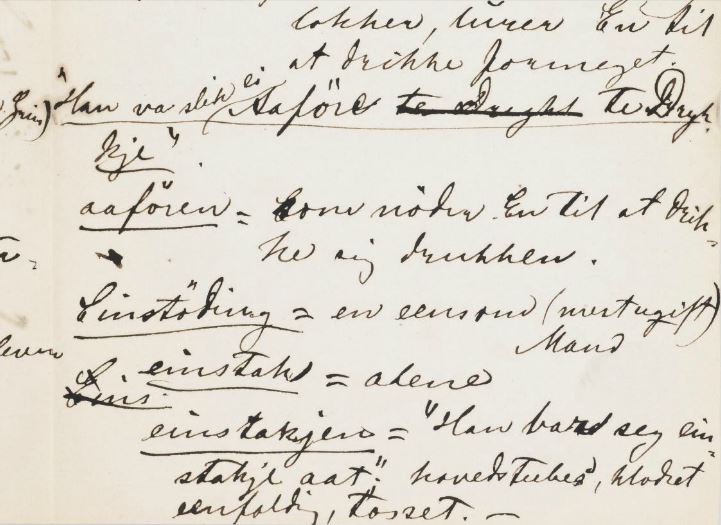 lokker, lurer En til
at drikke formeget.
"Han va slik ei Aaföre te Dryk-
kje".
aafören = som nöder En til at drik-
ke sig drukken.
Einstöding = en eensom (mest ugift)
Mand
einstak = alene
Eins
einstakjen = "Han bard seg ein-
stakje aat": hovedstubes, klodset
eenfoldig, tosset. —